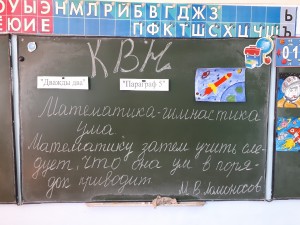 ОУЫЭ НМЛРЙБВГДЖЗ
ЕЮИЕ ПФКТШСХЦЧЩ
Ь
Ъ
КВН
"Дважды два" "Параграф 5"
Математика-гимнастика
ума
Математику затем учить сле-
дует, что она ум в поря-
док приводит
М.В.Ломоносов